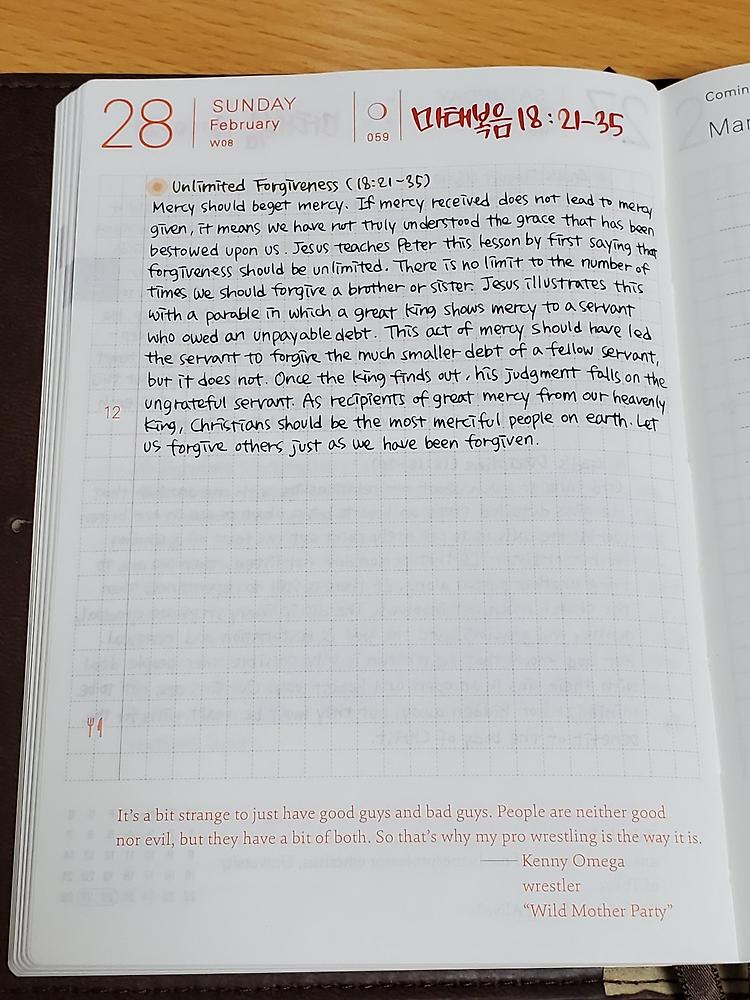 28
SUNDAY
February
W08
059
마태복음 18:21-35
Comin
Mar
Unlimited Forgiveness (18:21-35)
Mercy should beget mercy. If mercy received does not lead to mercy
given, it means we have not truly understood the grace that has been
bestowed upon us. Jesus teaches Peter this lesson by first saying that
forgiveness should be unlimited. There is no limit to the number of
times we should forgive a brother or sister. Jesus illustrates this
with a parable in which a great king shows mercy to a servant
who owed an unpayable debt. This act of mercy should have led
the servant to forgive the much smaller debt of a fellow servant,
but it does not. Once the king finds out, his judgment falls on the
ungrateful servant. As recipients of great mercy from our heavenly
King, Christians should be the most merciful people on earth. Let
us forgive others just as we have been forgiven.
12
It's a bit strange to just have good guys and bad guys. People are neither good
nor evil, but they have a bit of both. So that's why my pro wrestling is the way it is.
—— Kenny Omega
wrestler
"Wild Mother Party"